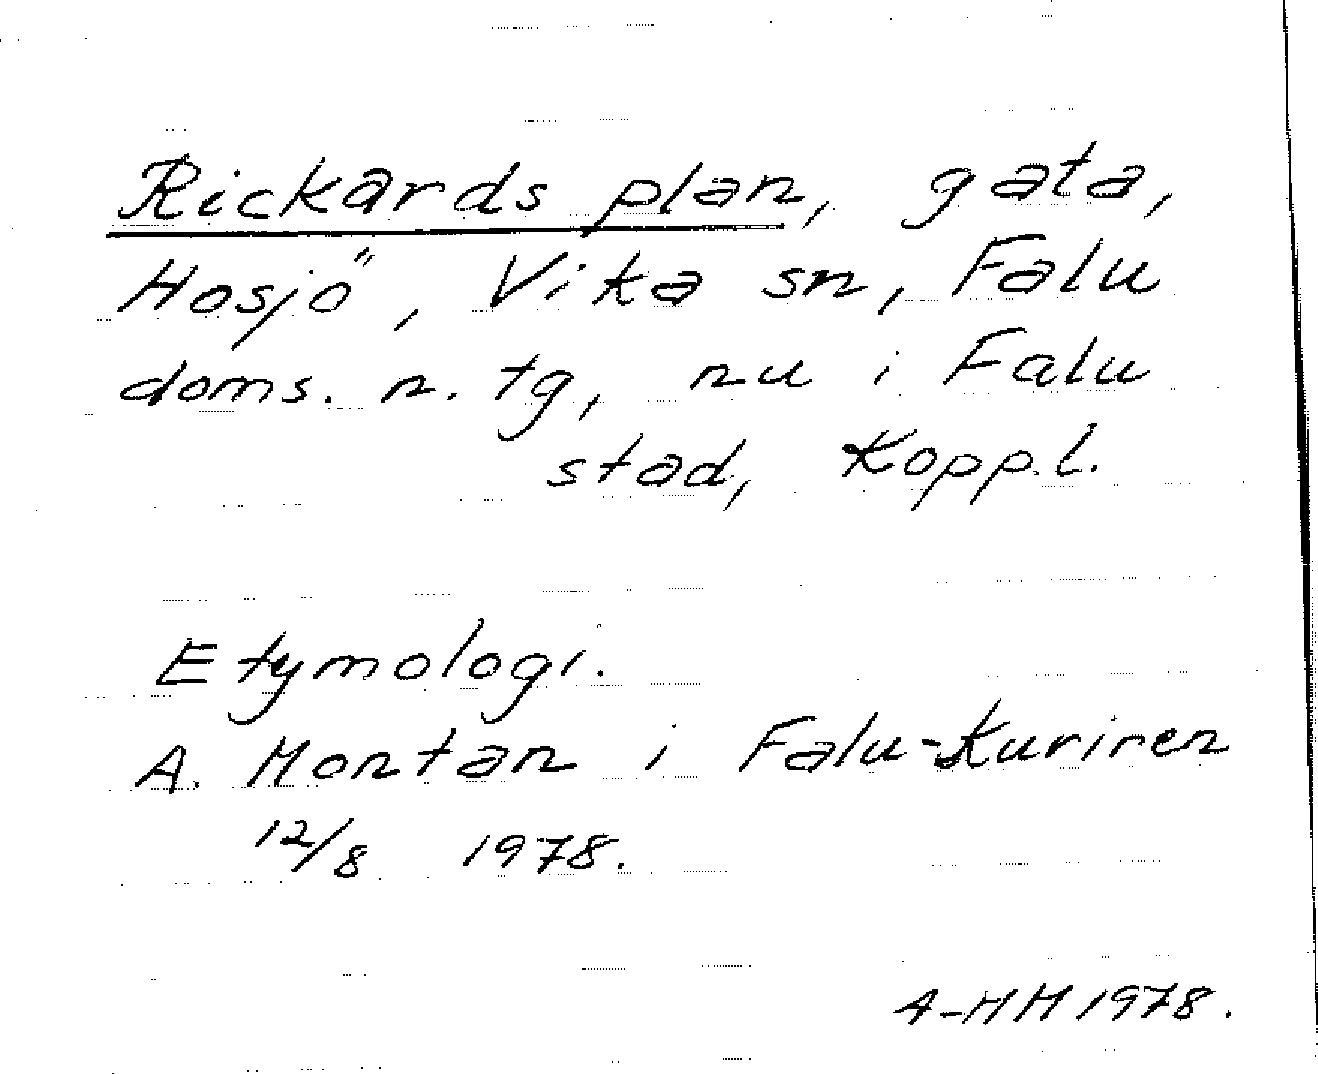 Rickards plan, gata,
Hosjö, Vika sn, Falu
doms. n. tg, nu i Falu
stad, Kopp.l.
Etymologi.
A. Montan i Falu-Kuriren
12/8 1978.
A-MM 1978.